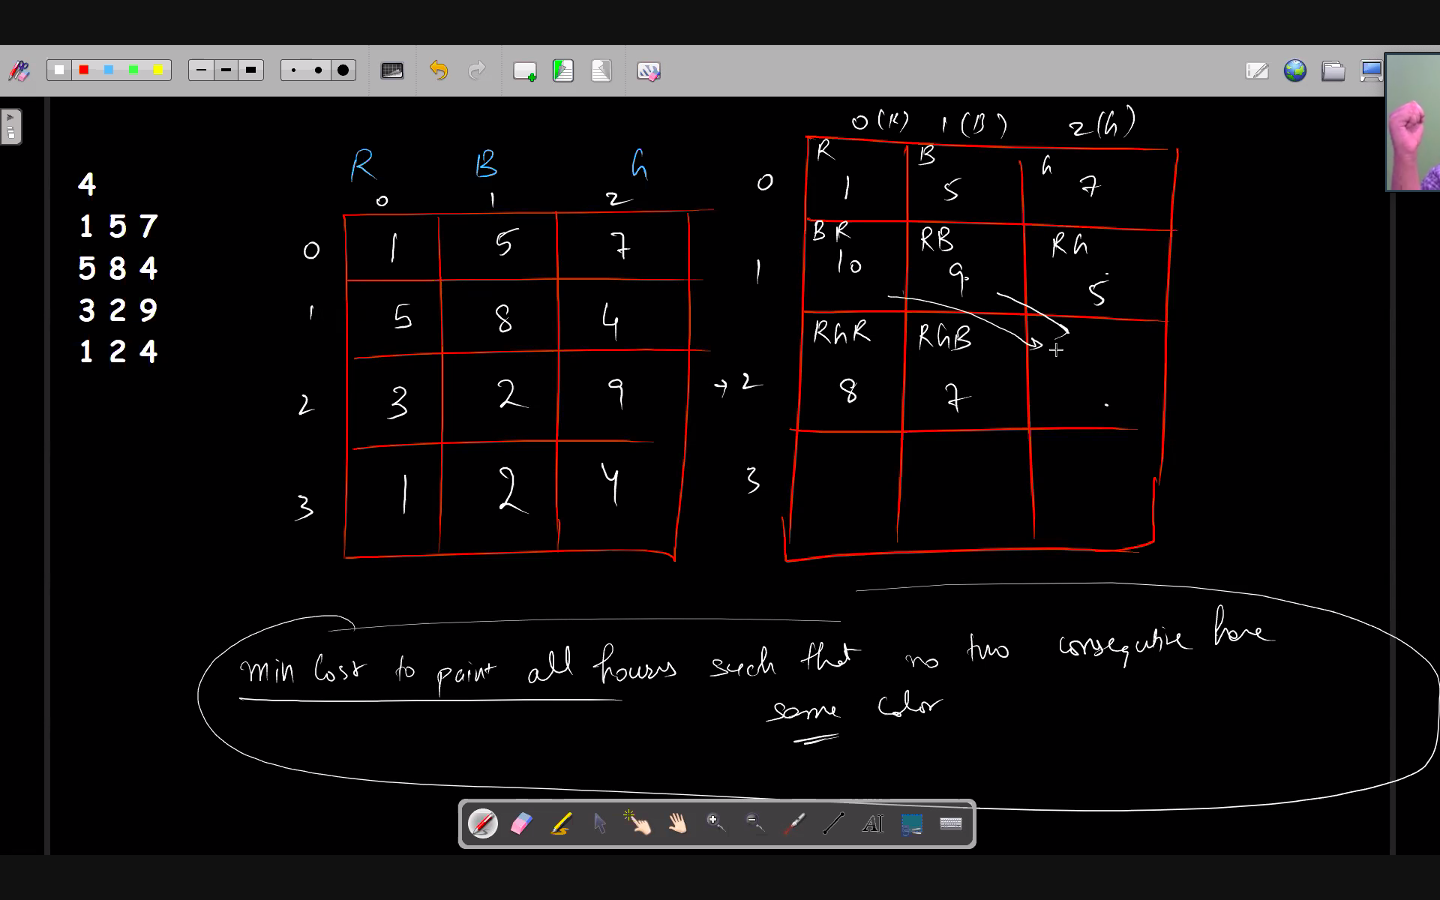 4
1 5 7
5 8 4
3 2 9
1 2 4
R B G
0 1 2
0 1 5 7
1 5 8 4
2 3 2 9
3 1 2 4
0(R) 1(B) 2(G)
R B G
0 1 5 7
BR RB RG
1 10 9 5
RGR RGB
→ 2 8 7 .
3
min cost to paint all houses such that no two consequtive have
same color
AI